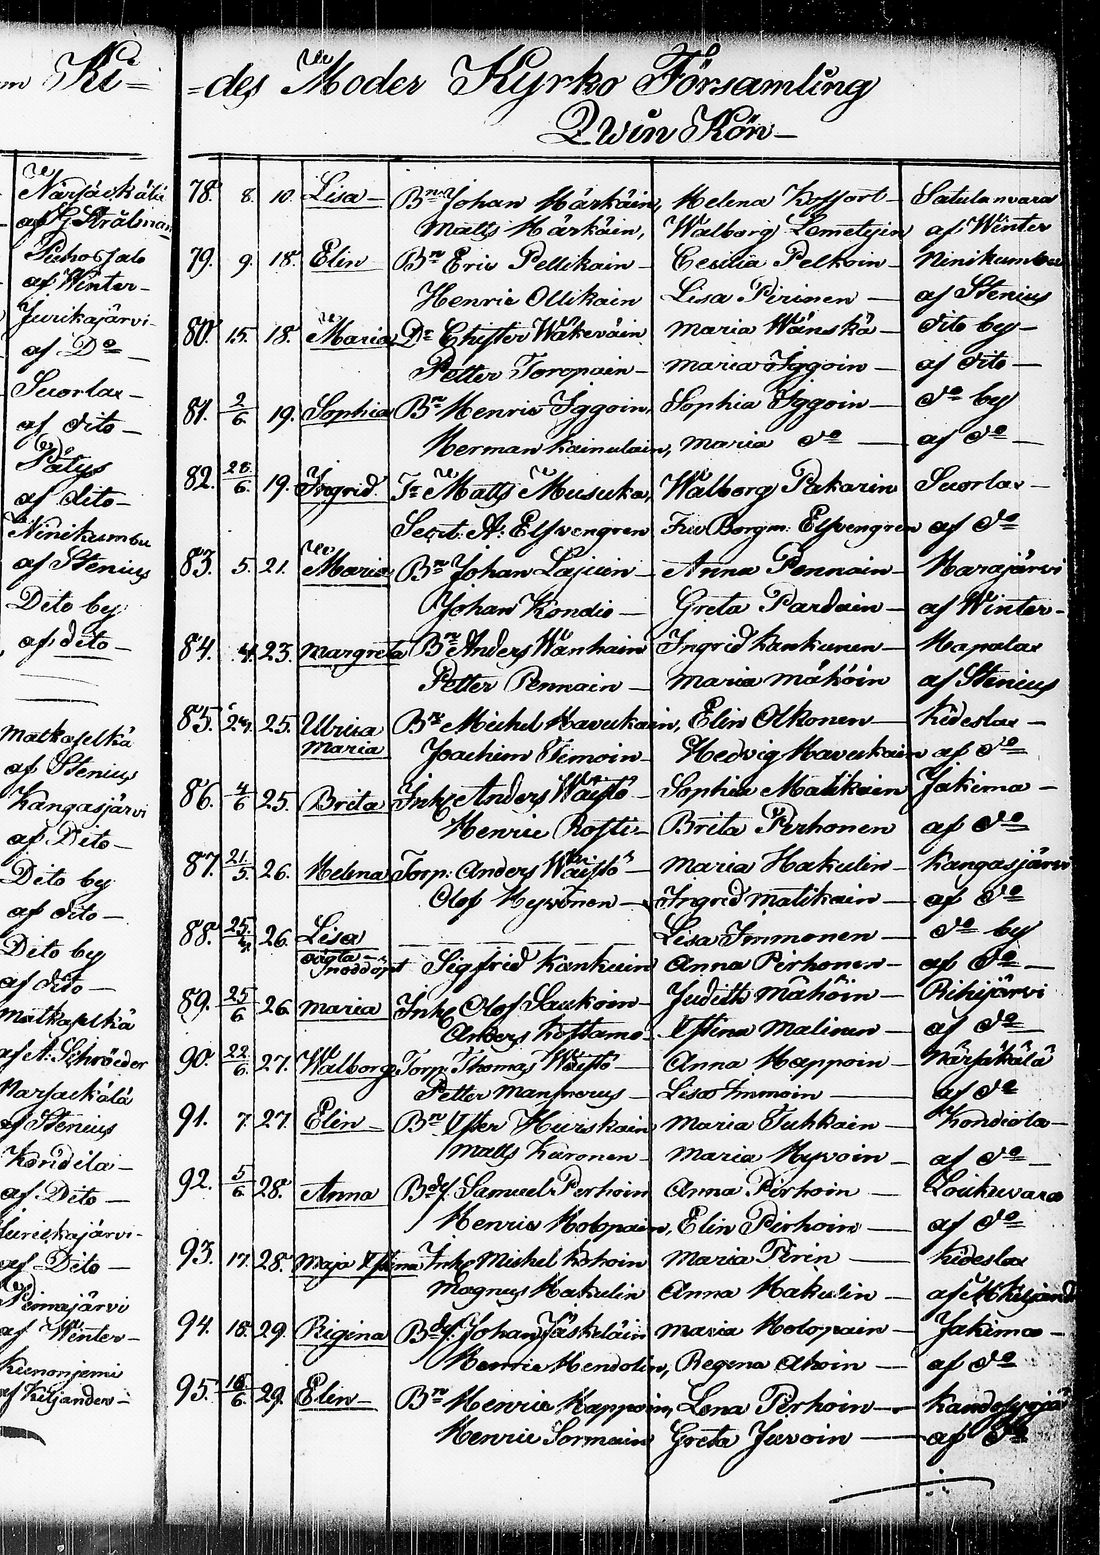 Ki=
Närsäckälä
af G Strålman
Puhos Jalo
af Winter
Jurikajärvi
af Do
Suorlax
af dito
Pätys
af dito
Ninikumbu
af Stenius
Dito by
af dito
Matkaselkä
af Stenius
Kangasjärvi
af Dito
Dito by
af dito
Dito by
af dito
Matkaselkä
af A: Schröeder
Närsäckälä
af Stenius
Kondela
af Dito
Jurickajärvi
af Dito
Pämäjärvi
af Winter
Kiinonjemi
af Kiljander
=des Moder Kyrko Församling
Qwin Kön
78. 8. 10. Lisa Bn Johan Kärkäin, Helena Koffort Satulanvara
Matts Kärkäin, Walborg Lemetyin af Winter
79. 9. 18. Elin Bn Eric Pellikain Cecilia Pelkoin Ninikumbu
Henric Ollikain Lisa Pirinen af Stenius
80. 15. 18. Maria Dr Chister Wäkeväin Maria Wänskä Dito by
Petter Toropain Maria Iggoin af dito
81. 2/6 19. Sophia Bn Henric Iggoin, Sophia Iggoin do by
Herman Kainulain, Maria do af do
82. 28/6 19. Ingrid Matts Musuka, Walborg Pakarin Suorlax
Secrt: A: Elfvengren Fru Borgm: Elfvengren af do
83. 5. 21. Maria Bn Johan Lajuin Anna Pennain Harajärvi
Johan Kondio Greta Pardain af Winter
84. 4. 23. Margreta Bn Anders Wänhain Ingrid Kankunen Hapalax
Petter Pennain Maria Mähöin af Stenius
85. 24. 25. Ulrica Maria Bn Michel Havukain, Elin Olkonen Kideslax
Joachim Timoin Hedvig Havukain af do
86. 4/6 25. Brita Inh: Anders Wäistö Sophia Matikain Jakima
Henric Rosti Brita Pirhonen af do
87. 21/5 26. Helena Torp: Anders Wäistö Maria Hakulin Kangasjärvi
Olof Hyvönen Ingrid Matikain af do
88. 25/4 26. Lisa oägta Lisa Immonen do by
Nöddöpt Sigfrid Kankuin Anna Pirhonen af do
89. 25/6 26. Maria Inh: Olof Saukoin Judith Mähöin Rihijärvi
Anders Kostamo Stina Malinen af do
90. 22/6 27. Walborg Torp: Thomas Wäistö Anna Happoin Närsäkälä
Petter Manninus Lisa Immoin af do
91. 7. 27. Elin Bn Ister Huriskain Maria Tuhkain Kondiola
Matts Karonen Maria Hyvoin af do
92. 5/6 28. Anna Bdf. Samuel Perhoin Anna Pirhoin Loukuvara
Henric Holopain, Elin Pirhoin af do
93. 17. 28. Maja Stina Inh: Michel Kohoin Maria Pirin Kideslax
Magnus Hakulin Anna Hakulin af Kiljander
94. 18. 29. Rigina Bdf: Johan Jäskeläin Maria Holopain Jakima
Henric Hendolin, Regena Ahoin af do
95. 18/6 29. Elin Bn Henric Happoin, Lena Pirhoin
Henric Sormain Greta Juvoin af do